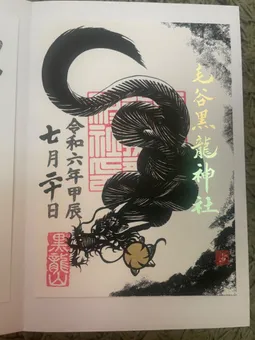 毛谷黒龍神社
令和六年甲辰
七月二十日
黒龍山